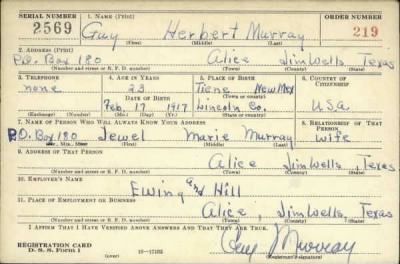 SERIAL NUMBER 1. NAME (Print) ORDER NUMBER
2569 Guy Herbert Murray 219
(First) (Middle) (Last)
2. ADDRESS (Print)
P.O. Box 180 Alice Jim Wells Texas
(Number and street or R. F. D. number) (Town) (County) (State)
3. TELEPHONE 4. AGE IN YEARS 5. PLACE OF BIRTH 6. COUNTRY OF CITIZENSHIP
none 23 New Mex
DATE OF BIRTH (Town or county)
Feb. 17 1917 Lincoln Co. U.S.a.
(Exchange) (Number) (Mo.) (Day) (Yr.) (State or country)
7. NAME OF PERSON WHO WILL ALWAYS KNOW YOUR ADDRESS 8. RELATIONSHIP OF THAT PERSON
P.O. Box 180 Jewel Marie Murray wife
(Mr., Mrs., Miss) (First) (Middle) (Last)
9. ADDRESS OF THAT PERSON
Alice Jim Wells, Texas
(Number and street or R. F. D. number) (Town) (County) (State)
10. EMPLOYER'S NAME
Ewing and Hill
11. PLACE OF EMPLOYMENT OR BUSINESS
Alice, Jim Wells, Texas
(Number and street or R. F. D. number) (Town) (County) (State)
I AFFIRM THAT I HAVE VERIFIED ABOVE ANSWERS AND THAT THEY ARE TRUE.
REGISTRATION CARD
D. S. S. Form 1 Guy Murray
(Registrant's signature)